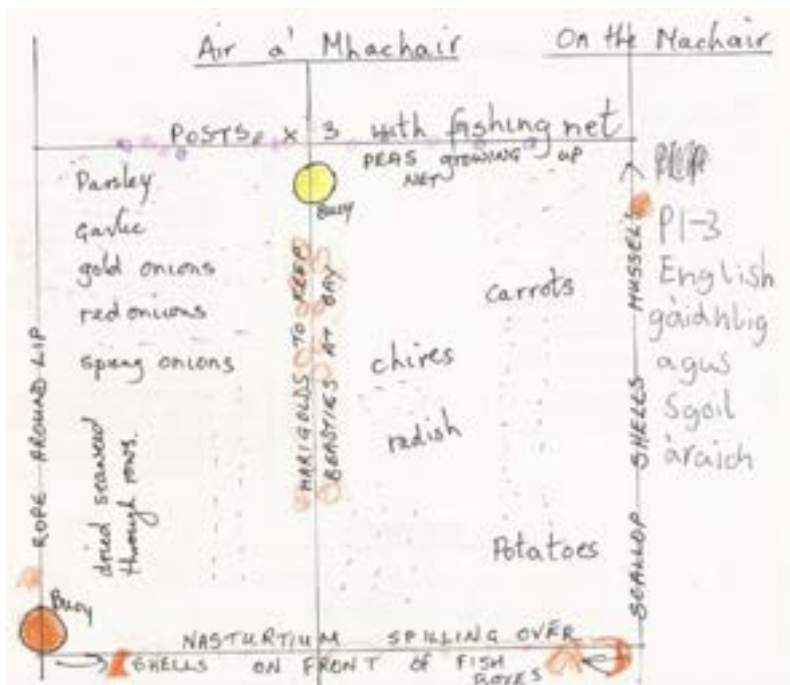 Air a' Mhachair
On the Machair
POSTS x 3 with fishing net
PEAS GROWING UP
NET
Parsley
Garlic
gold onions
red onions
spring onions
dried seaweed
through rows.
ROPE AROUND LIP
Buoy
Buoy
MARIGOLDS TO KEEP
BEASTIES AT BAY
carrots
chires
radish
Potatoes
SCALLOP SHELLS MUSSELS
P1-3
English
gàidhlig
agus
Sgoil
àraich
NASTURTIUM SPILLING OVER
SHELLS ON FRONT OF FISH
BOXES